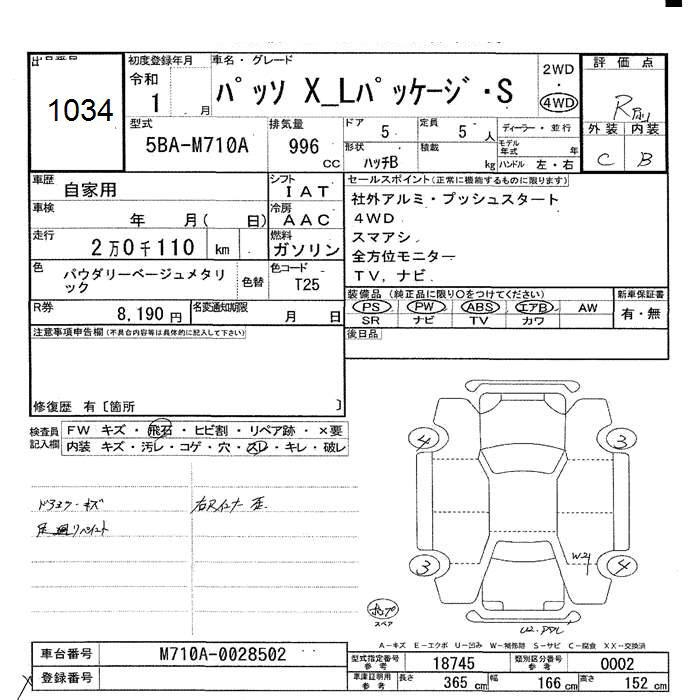 出品番号
1034
初度登録年月
令和
1 月
車名・グレード
パッソ X_Lパッケージ・S
2WD
4WD
評価点
R
外装 内装
C B
型式
5BA-M710A
排気量
996 cc
ドア
5
定員
5 人
ディーラー・並行
モデル年式 年
形状
ハッチB
積載
kg
ハンドル 左・右
車歴
自家用
シフト
IAT
車検
年 月( 日)
冷房
AAC
走行
2万0千110 km
燃料
ガソリン
色
パウダリーベージュメタリック
色替
色コード
T25
R券
8,190 円
名変通知期限
月 日
セールスポイント(正常に機能するものに限ります)
社外アルミ・プッシュスタート
4WD
スマアシ
全方位モニター
TV,ナビ
装備品(純正品に限り○をつけてください)
PS PW ABS エアB AW
SR ナビ TV カワ
新車保証書
有・無
後日品
注意事項申告欄(不具合内容等は具体的に記入して下さい)
修復歴 有〔箇所 〕
検査員記入欄
FW キズ・飛石・ヒビ割・リペア跡・×要
内装 キズ・汚レ・コゲ・穴・スレ・キレ・破レ
ドラミラーキズ
足廻リペイント
右Rインナー歪
4
3
3
4
W2
スペア
A-キズ E-エクボ U-凹み W-補修跡 S-サビ C-腐食 XX-交換済
車台番号
M710A-0028502
登録番号
型式指定番号
参考
18745
類別区分番号
参考
0002
車庫証明用
参考
長さ 365 cm
幅 166 cm
高さ 152 cm